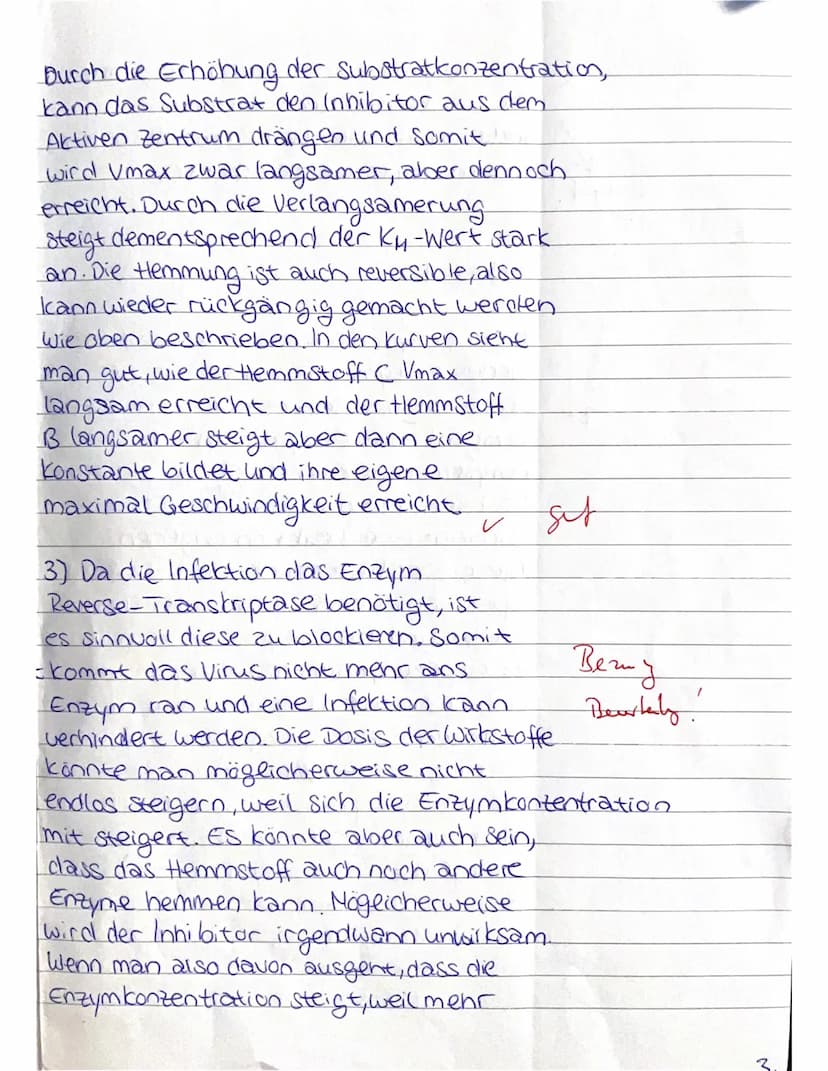 Durch die Erhöhung der Substratkonzentration,
kann das Substrat den Inhibitor aus dem
Aktiven Zentrum drängen und somit
wird Vmax zwar langsamer, aber dennoch
erreicht. Durch die Verlangsamerung
steigt dementsprechend der KM-Wert stark
an. Die Hemmung ist auch reversible, also
kann wieder rückgängig gemacht werden
wie oben beschrieben. In den Kurven sieht
man gut, wie der Hemmstoff C Vmax
langsam erreicht und der Hemmstoff
B langsamer steigt aber dann eine
Konstante bildet und ihre eigene
maximal Geschwindigkeit erreicht.
✓ gut
3) Da die Infektion das Enzym
Reverse-Transkriptase benötigt, ist
es sinnvoll diese zu blockieren. Somit
kommt das Virus nicht mehr ans
Bezug
Enzym ran und eine Infektion kann
verhindert werden. Die Dosis der Wirkstoffe
könnte man möglicherweise nicht
endlos steigern, weil sich die Enzymkonzentration
mit steigert. Es könnte aber auch sein,
dass das Hemmstoff auch noch andere
Enzyme hemmen kann. Möglicherweise
wird der Inhibitor irgendwann unwirksam.
Wenn man also davon ausgeht, dass die
Enzymkonzentration steigt, weil mehr
3.